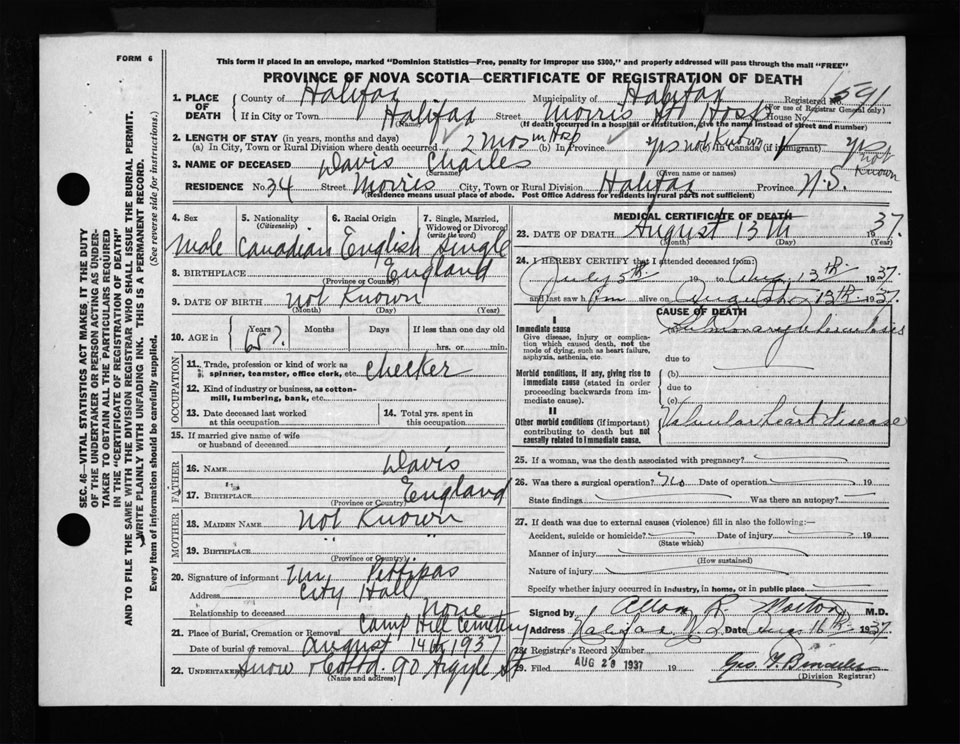 FORM 6
This form if placed in an envelope, marked "Dominion Statistics—Free, penalty for improper use $300," and properly addressed will pass through the mail "FREE"
PROVINCE OF NOVA SCOTIA—CERTIFICATE OF REGISTRATION OF DEATH
SEC. 46—VITAL STATISTICS ACT MAKES IT THE DUTY
OF THE UNDERTAKER OR PERSON ACTING AS UNDER-
TAKER TO OBTAIN ALL THE PARTICULARS REQUIRED
IN THE "CERTIFICATE OF REGISTRATION OF DEATH"
AND TO FILE THE SAME WITH THE DIVISION REGISTRAR WHO SHALL ISSUE THE BURIAL PERMIT.
WRITE PLAINLY WITH UNFADING INK. THIS IS A PERMANENT RECORD.
Every item of information should be carefully supplied. (See reverse side for instructions.)
1. PLACE OF DEATH County of Halifax Municipality of Halifax Registered No. 1591
(For use of Registrar General only)
If in City or Town Halifax Street Morris St Hosp House No.
(Name) (If death occurred in a hospital or institution, give the name instead of street and number)
2. LENGTH OF STAY (in years, months and days)
(a) In City, Town or Rural Division where death occurred 2 mos in Hosp (b) In Province yrs not known (c) In Canada (if immigrant) yrs not known
3. NAME OF DECEASED Davis Charles
(Surname) (Given name or names)
RESIDENCE No. 34 Street Morris City, Town or Rural Division Halifax Province N.S.
(Residence means usual place of abode. Post Office Address for residents in rural parts not sufficient)
4. Sex 5. Nationality (Citizenship) 6. Racial Origin 7. Single, Married, Widowed or Divorced (write the word)
Male Canadian English Single
8. BIRTHPLACE England
(Province or Country)
9. DATE OF BIRTH not Known
(Month) (Day) (Year)
10. AGE in Years Months Days If less than one day old
65?. hrs. or min.
OCCUPATION
11. Trade, profession or kind of work as spinner, teamster, office clerk, etc. checker
12. Kind of industry or business, as cotton-mill, lumbering, bank, etc.
13. Date deceased last worked at this occupation 14. Total yrs. spent in this occupation
15. If married give name of wife or husband of deceased
FATHER
16. NAME Davis
17. BIRTHPLACE England
(Province or Country)
MOTHER
18. MAIDEN NAME not Known
19. BIRTHPLACE " "
(Province or Country)
20. Signature of informant Wm Pettipas
Address City Hall
Relationship to deceased none
21. Place of Burial, Cremation or Removal Camp Hill Cemetery
Date of burial or removal August 14th 1937
22. UNDERTAKER Snow & Co Ltd. 90 Argyle St
(Name and address)
MEDICAL CERTIFICATE OF DEATH
23. DATE OF DEATH August 13th 1937.
(Month) (Day) (Year)
24. I HEREBY CERTIFY that I attended deceased from:
July 5th 19 to Aug. 13th 1937.
and last saw him alive on August 13th 1937.
CAUSE OF DEATH
I
Immediate cause
Give disease, injury or complication which caused death, not the mode of dying, such as heart failure, asphyxia, asthenia, etc.
Pulmonary Tuberculosis
due to
Morbid conditions, if any, giving rise to immediate cause (stated in order proceeding backwards from immediate cause).
(b)
due to
(c)
II
Other morbid conditions (if important) contributing to death but not causally related to immediate cause.
Valvular heart disease
25. If a woman, was the death associated with pregnancy?
26. Was there a surgical operation? No Date of operation 19
State findings Was there an autopsy?
27. If death was due to external causes (violence) fill in also the following:—
Accident, suicide or homicide? Date of injury 19
(State which)
Manner of injury
(How sustained)
Nature of injury
Specify whether injury occurred in industry, in home, or in public place
Signed by Allan R. Morton M.D.
Address Halifax N.S. Date Aug. 16th 1937.
28. Registrar's Record Number
29. Filed AUG 28 1937 19
(Division Registrar)